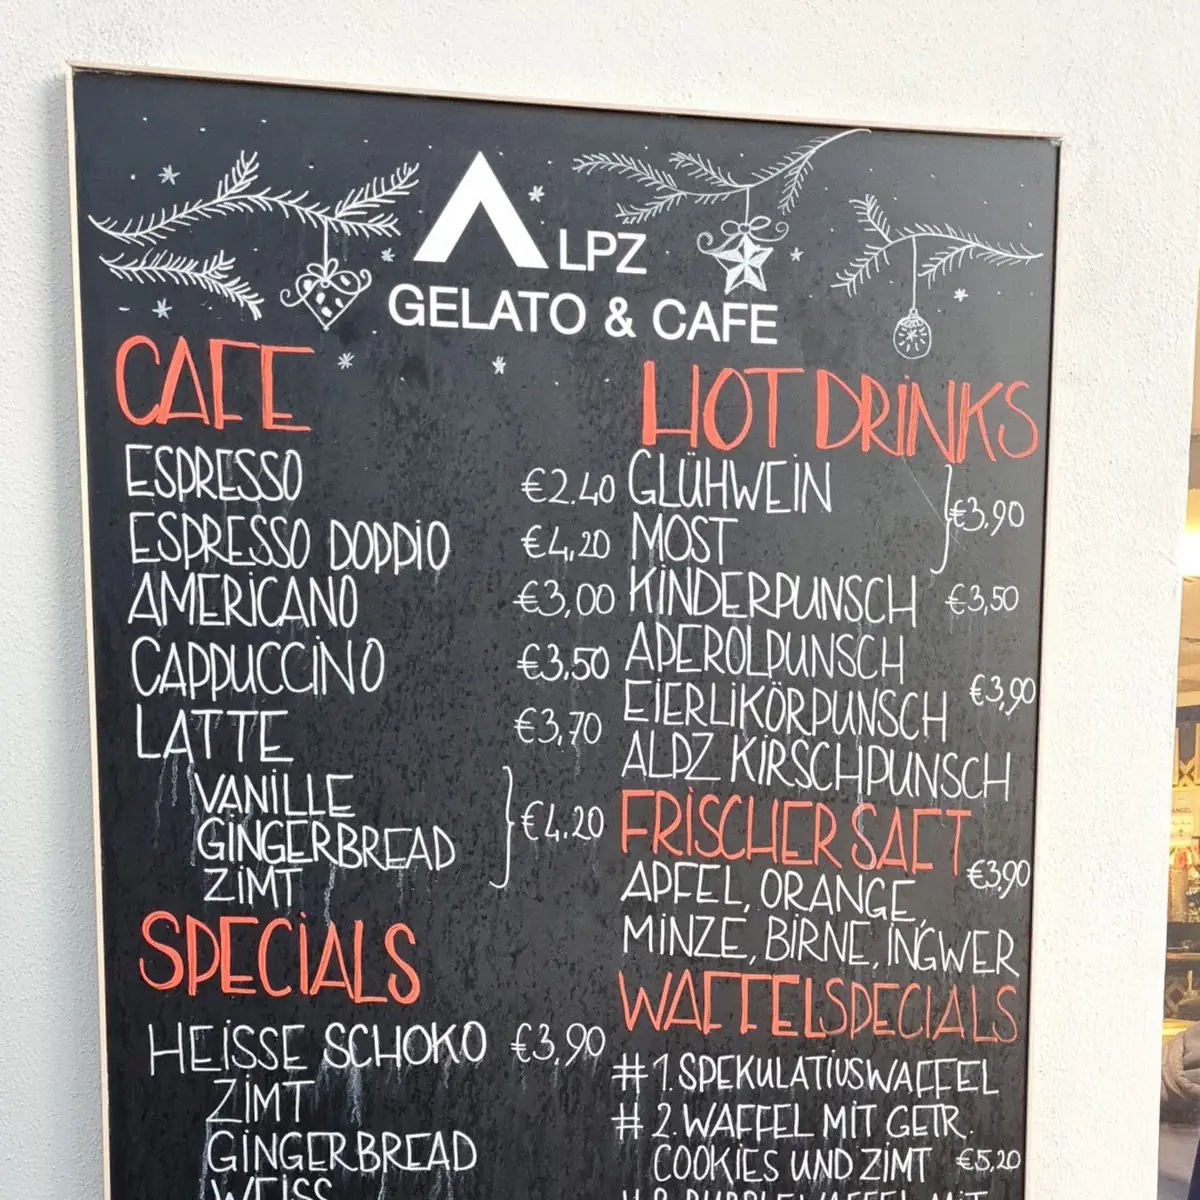 ALPZ
GELATO & CAFE
CAFE
ESPRESSO €2.40
ESPRESSO DOPPIO €4,20
AMERICANO €3,00
CAPPUCCINO €3,50
LATTE €3,70
VANILLE
GINGERBREAD €4.20
ZIMT
SPECIALS
HEISSE SCHOKO €3,90
ZIMT
GINGERBREAD
WEISS
HOT DRINKS
GLÜHWEIN €3,90
MOST
KINDERPUNSCH €3,50
APEROLPUNSCH
EIERLIKÖRPUNSCH €3,90
ALPZ KIRSCHPUNSCH
FRISCHER SAFT
APFEL, ORANGE, €3,90
MINZE, BIRNE, INGWER
WAFFELSPECIALS
#1. SPEKULATIUSWAFFEL
#2. WAFFEL MIT GETR.
COOKIES UND ZIMT €5,20